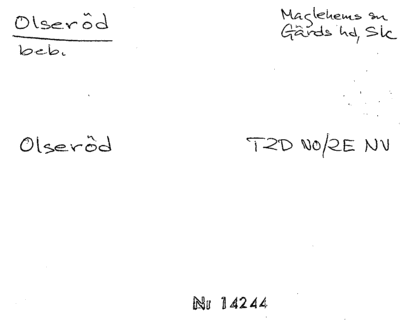 Olseröd
beb.
Maglehems sn
Gärds hd, Skc
Olseröd
T2D NO/2E NV
Nr 14244